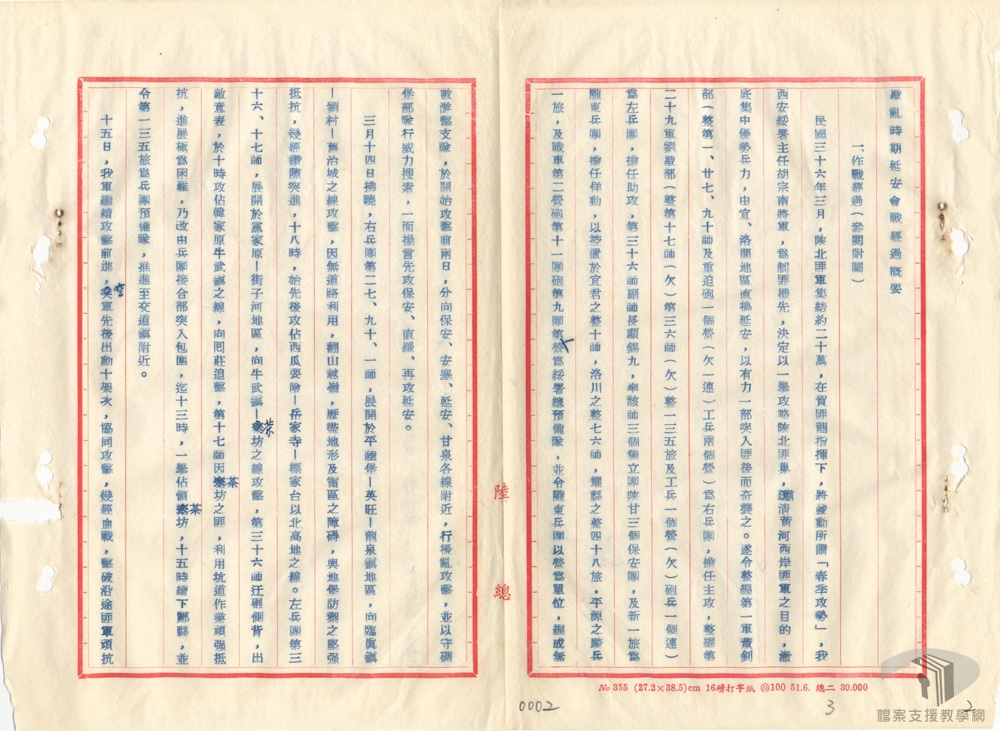 戡亂時期延安會戰經過概要
一、作戰經過(參閱附圖)
民國三十六年三月,陝北匪軍集結約二十萬,在賀匪龍指揮下,將發動所謂「春季攻勢」,我
西安綏署主任胡宗南將軍,為制匪機先,決定以一舉攻略陝北匪巢,肅清黃河西岸匪軍之目的,澈
底集中優勢兵力,由宜、洛間地區直搗延安,以有力一部突入匪後而奇襲之。遂令整編第一軍董釗
部(整第一、廿七、九十師及重迫砲一個營(欠一連)工兵兩個營)為右兵團,擔任主攻,整編第
二十九軍劉戡部(整第十七師(欠)第三六師(欠)整一三五旅及工兵一個營(欠)砲兵一個連)
為左兵團,擔任助攻,第三十六師副師長顧錫九,率該師三個獨立團陝甘三個保安團,及新一旅為
隴東兵團,擔任佯動,以控置於宜君之整十師,洛川之整七六師,耀縣之整四十八旅,平涼之騎兵
一旅,及戰車第二營砲第十一團砲第九團第營為綏署總預備隊,並令隴東兵團以營為單位,編成無
數游擊支隊,於開始攻擊前兩日,分向保安、安塞、延安、甘泉各線附近,行擾亂攻擊,並以守備
保部隊行威力搜索,一面揚言先攻保安、直羅、再攻延安。
三月十四日拂曉,右兵團第二七、九十、一師,展開於平陸堡—英旺—前泉鎮地區,向臨真鎮
—劉村—舊治城之線攻擊,因無道路利用,翻山越嶺,歷經地形及雷區之障礙,與地保防禦之堅強
抵抗,幾經鑽隙突進,十八時,始先後攻佔西瓜要險—岳家寺—標家台以北高地之線。左兵團第三
十六、十七師,展開於黨家原—街子河地區,向牛武鎮—茶坊之線攻擊,第三十六師迂迴側背,出
敵意表,於十時攻佔韓家原牛武鎮之線,向囘莊追擊,第十七師因茶坊之匪,利用坑道作業頑强抵
抗,進展極為困難,乃改由兵團接合部突入包圍,迄十三時,一舉佔領茶坊,十五時續下鄜縣,並
令第一三五旅為兵團預備隊,推進至交道鎮附近。
十五日,我軍繼續攻擊前進,空軍先後出動十架次,協同攻擊,幾經血戰,擊破沿途匪軍頑抗
陸 總
№ 355 (27.2×38.5)cm 16磅打字紙 @100 51.6. 總二 30.000
0002
3
2
檔案支援教學網